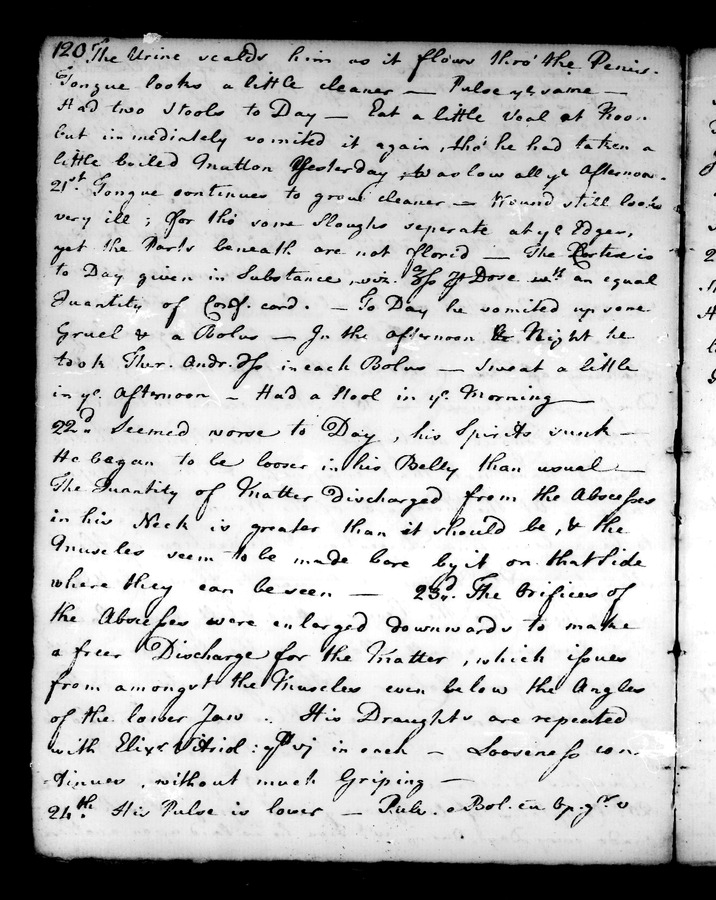 120. The Urine scalds him as it flows thro' the Penis.
Tongue looks a little cleaner — Pulse ye same —
Had two Stools to Day — Eat a little Veal at Noon
but immediately vomited it again, tho' he had taken a
little boiled Mutton Yesterday, was low all ye Afternoon.
21st. Tongue continues to grow cleaner — Wound still looks
very ill; for tho' some Sloughs seperate at ye Edges,
yet the Parts beneath are not florid — The Cortex is
to Day given in Substance, viz. ʒſs Dose wth an equal
Quantity of Conf. card. — To Day he vomited up some
Gruel & a Bolus — In the afternoon & Night he
took Ther. Andr. ʒſs in each Bolus — Sweat a little
in ye. Afternoon — Had a Stool in ye. Morning —
22d. Seemed worse to Day, his Spirits sunk —
He began to be looser in his Belly than usual —
The Quantity of Matter discharged from the Abscesses
in his Neck is greater than it should be, & the
Muscles seem to be made bare by it on that Side
where they can be seen — 23d. The Orifices of
the Abscesses were enlarged downwards to make
a freer Discharge for the Matter, which issues
from amongst the Muscles even below the Angles
of the lower Jaw .. His Draughts are repeated
with Elixr Vitriol: vj in each — Looseness con-
-tinues, without much Griping —
24th. His Pulse is lower — Pulv. e Bol. cu Op. gr. v